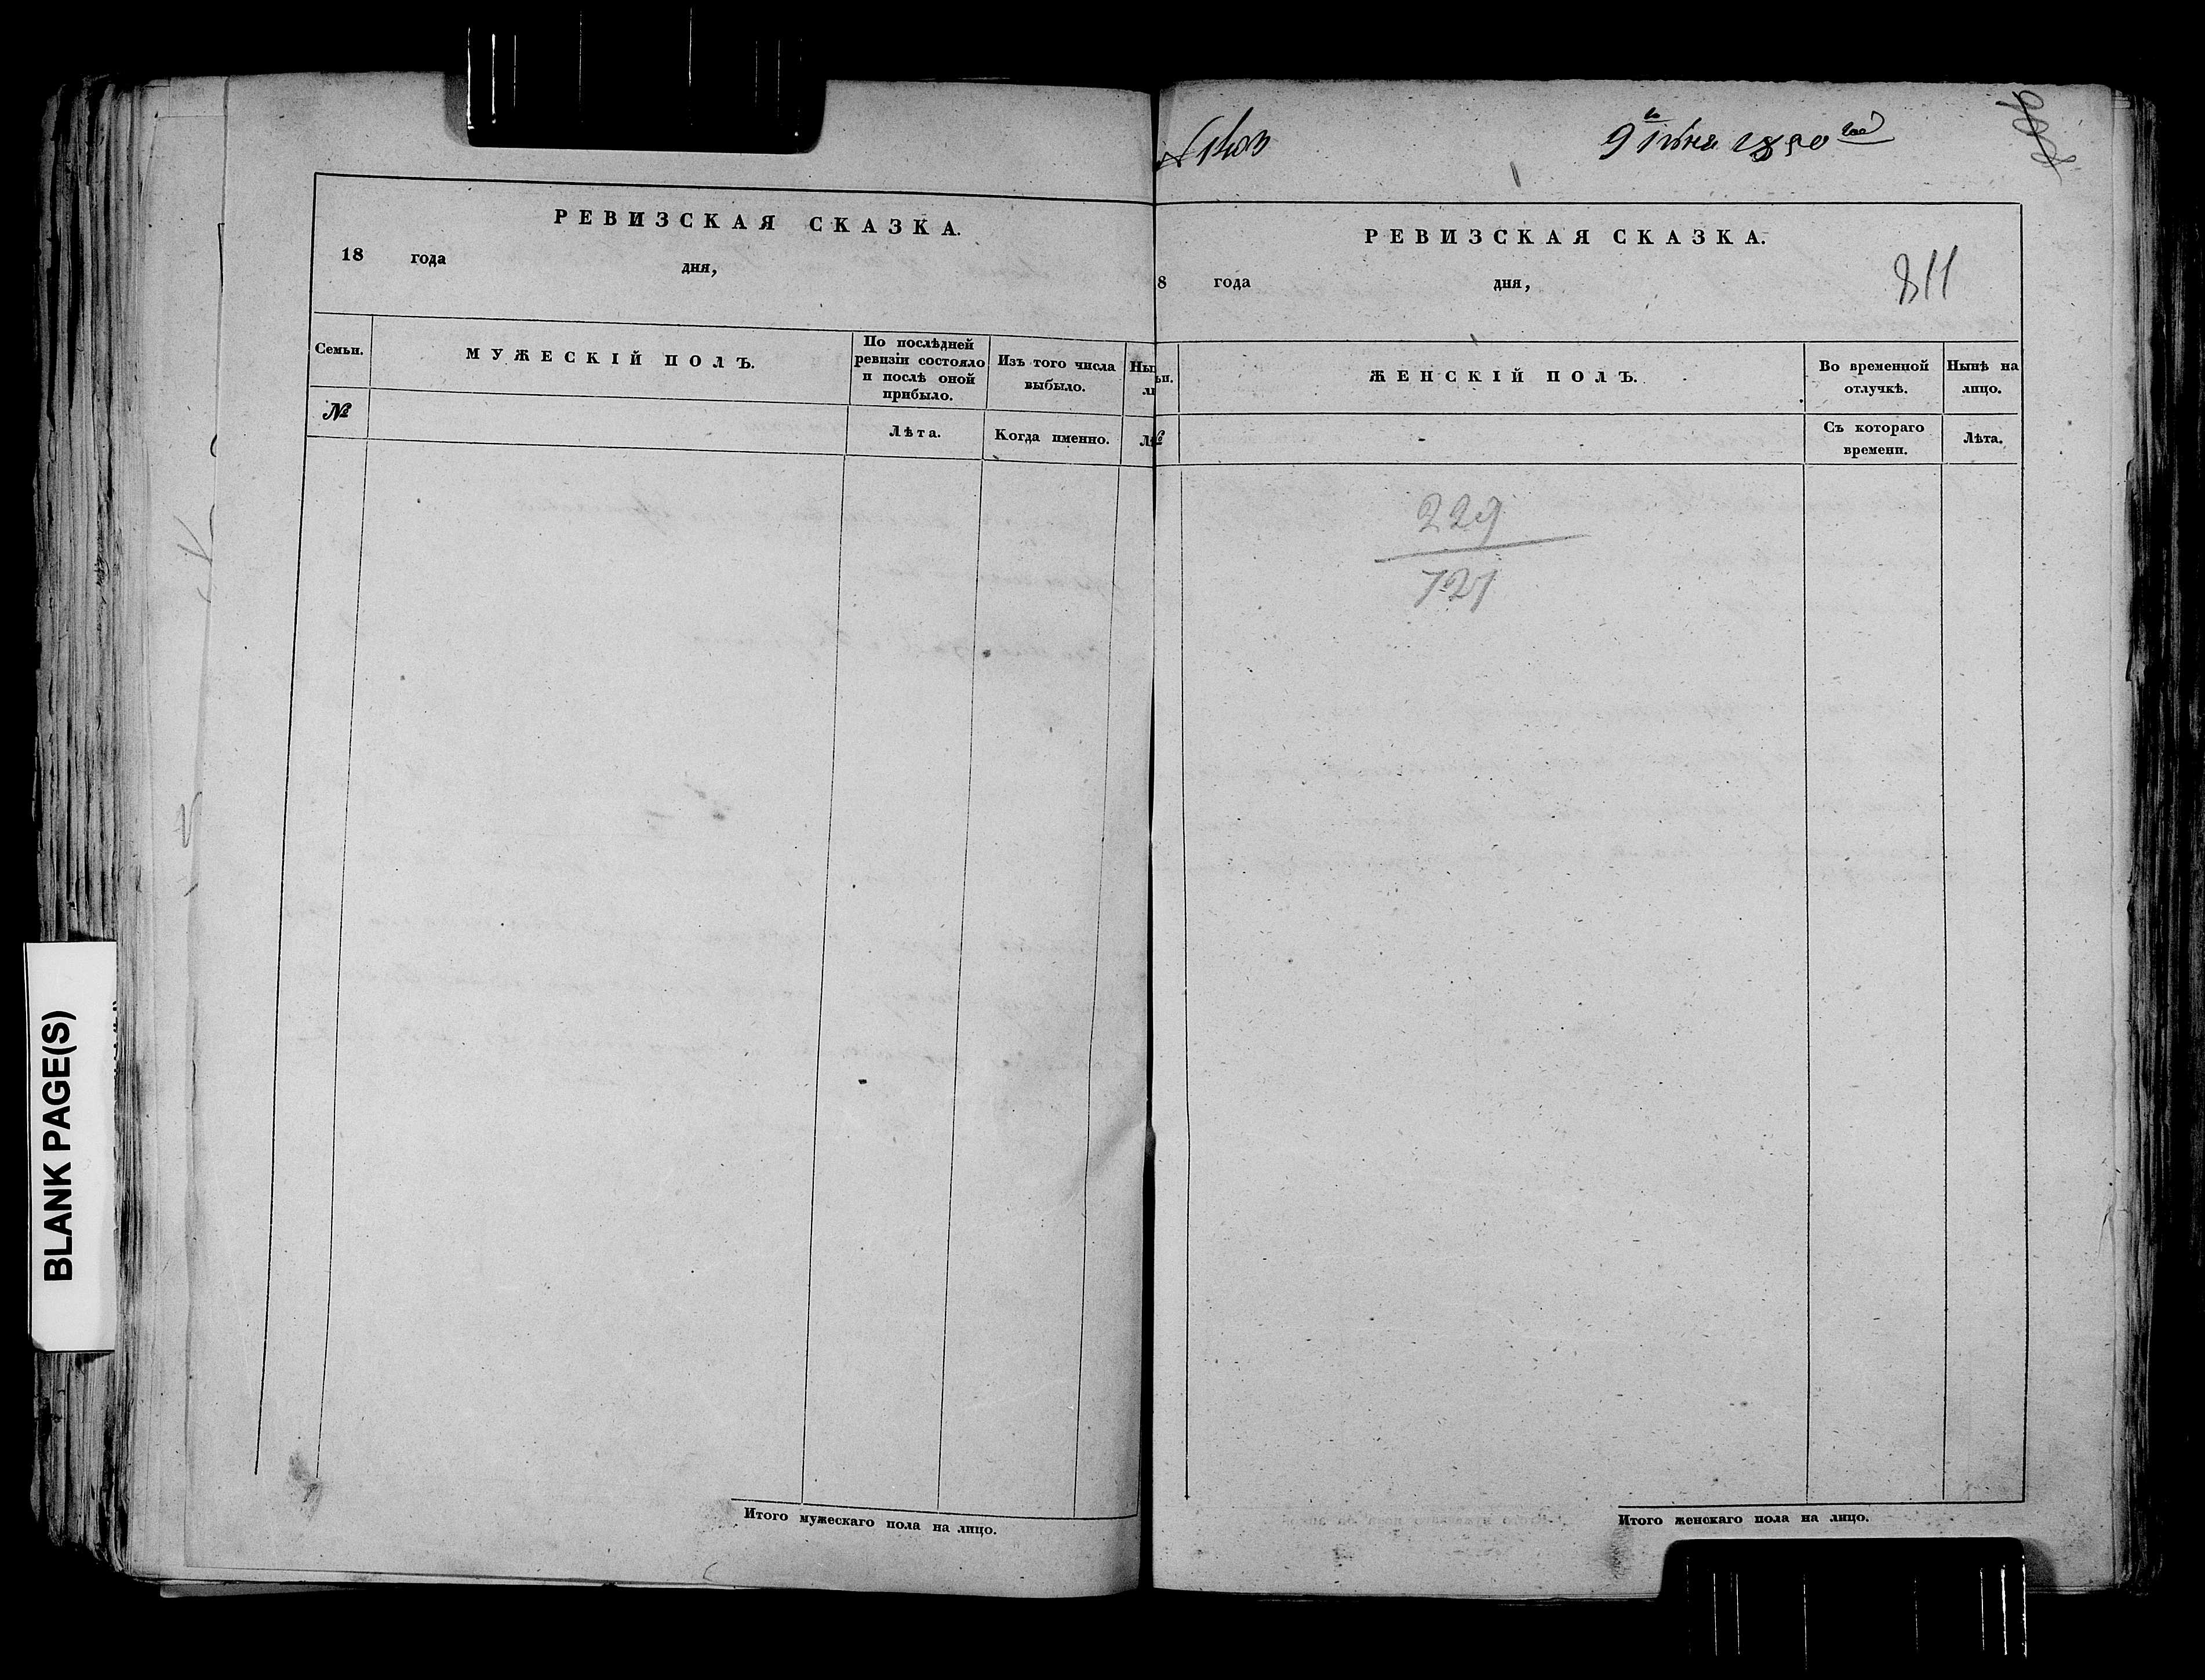 РЕВИЗСКАЯ СКАЗКА.
18 года дня,
Семьи.
МУЖЕСКІЙ ПОЛЪ.
По послѣдней
ревизіи состояло
и послѣ оной
прибыло.
Изъ того числа
выбыло.
№
Лѣта.
Когда именно.
Итого мужескаго пола на лицо.
9го Іюня 1850 года
РЕВИЗСКАЯ СКАЗКА.
8 года дня,
811
ЖЕНСКІЙ ПОЛЪ.
Во временной
отлучкѣ.
Нынѣ на
лицо.
Съ котораго
времени.
Лѣта.
229
721
Итого женскаго пола на лицо.
BLANK PAGE(S)